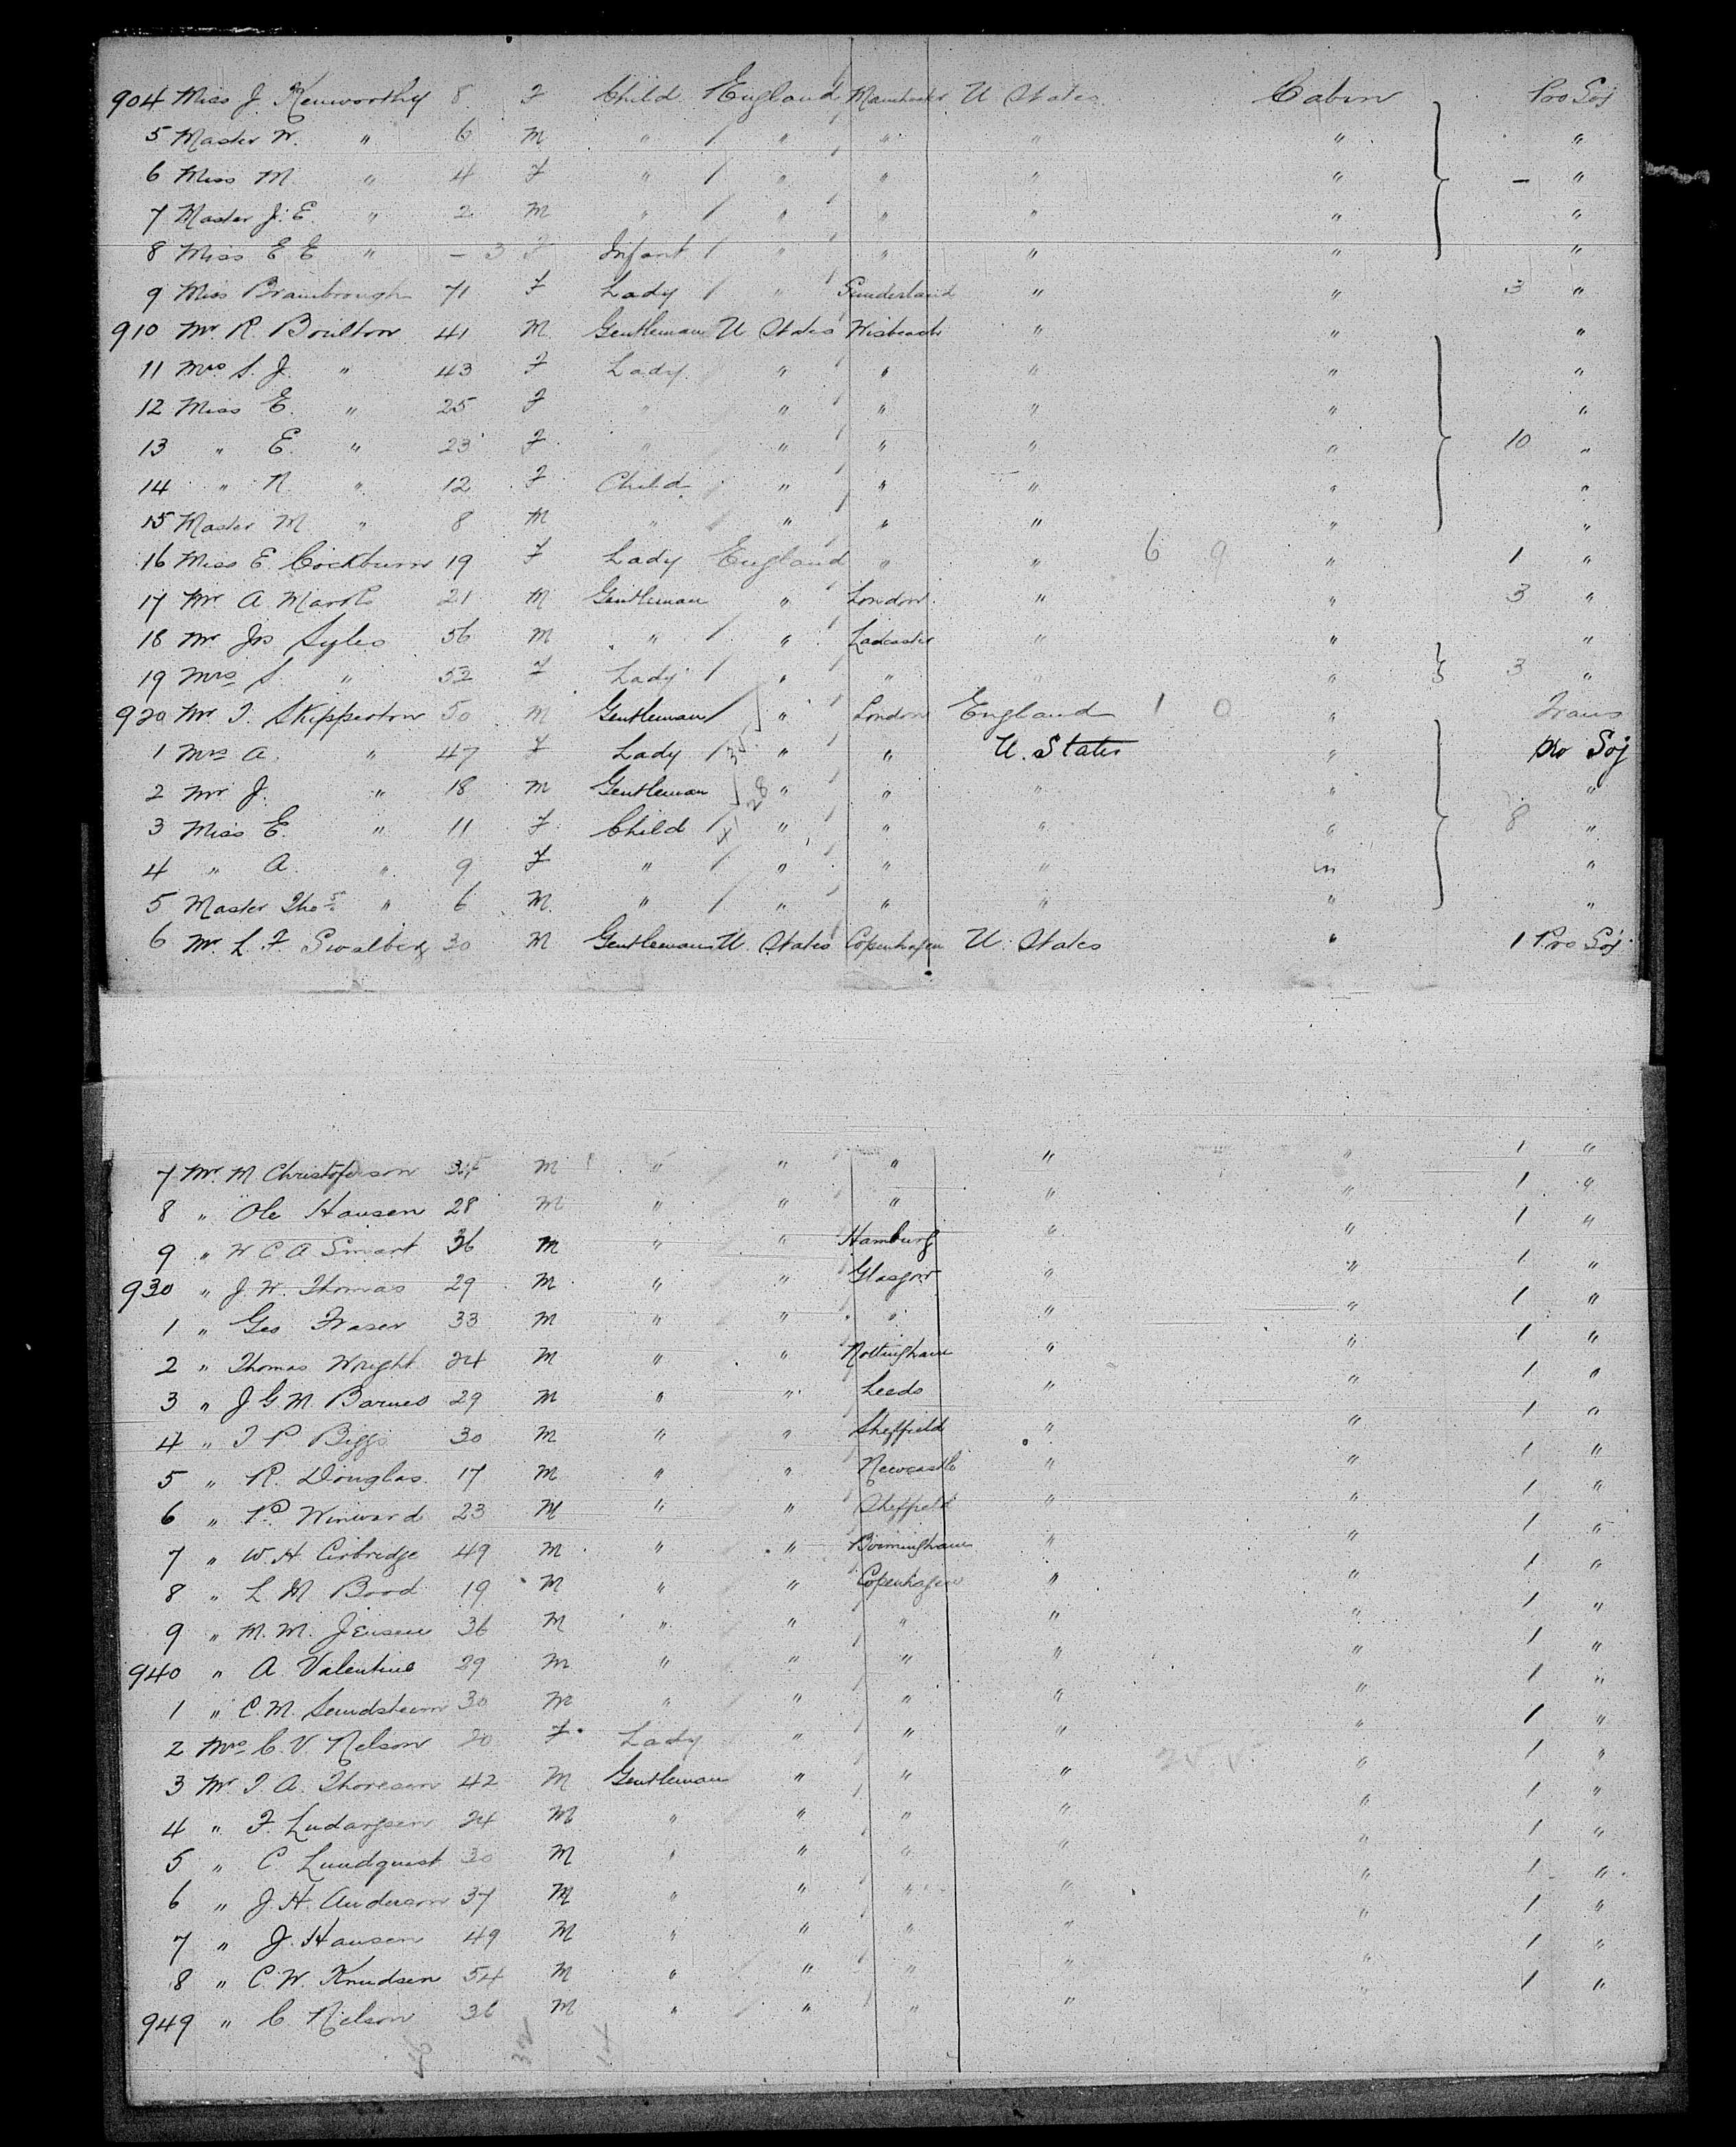 904 Miss J. Kenworthy 8 F Child England Manchester U States Cabin Pro Soj
5 Master W. " 6 M " / " " " " "
6 Miss M " 4 F " / " " " " – "
7 Master J. E. " 2 M " / " " " " "
8 Miss E E " – 3 F Infant / " " " " "
9 Miss Brambrough 71 F Lady / " Sunderland " " 3 "
910 Mr. R. Boulton 41 M Gentleman U States Wisbeach " " "
11 Mrs S. J. " 43 F Lady " " " " "
12 Miss E. " 25 F " " " " " "
13 " E. " 23 F " " " " " 10 "
14 " N. " 12 F Child " " " " "
15 Master M " 8 M " / " " " " "
16 Miss E Cockburn 19 F Lady England " " 6 9 " 1 "
17 Mr A 21 M Gentleman " London " " 3 "
18 Mr Jos Syles 56 M " / " " " "
19 Mrs S. " 52 F Lady / " " " " 3 "
920 Mr T. Skipperton 50 M Gentleman / " London England 1 0 " Trans
1 Mrs A. " 47 F Lady / 35 " " U. States " Pro Soj
2 Mr J. " 18 M Gentleman 28 " " " " "
3 Miss E. " 11 F Child / " " " " 8 "
4 " A. " 9 F " / " " " " "
5 Master Thos. " 6 M. " / " " " " "
6 Mr. L. F Swalberg 30 M Gentleman U. States Copenhagen U. States " 1 Pro Soj
7 Mr. M Christoferson M " " " " " 1 "
8 " Ole Hansen 28 M " " " " " 1 "
9 " W C A Smart 36 M " " Hamburg " " 1 "
930 " J. W. Thomas 29 M " " Glasgow " " 1 "
1 " Geo Fraser 33 M " " " " " 1 "
2 " Thomas Wright 24 M " " Nottingham " " 1 "
3 " J G M. Barnes 29 M " " Leeds " " 1 "
4 " T P Biggs 30 M " " Sheffield " " 1 "
5 " R. Douglas 17 M " " Newcastle " " 1 "
6 " P. Winward 23 M " " Sheffield " " 1 "
7 " W. H Cirbridge 49 M " " Birmingham " " 1 "
8 " L M Bood 19 M " " Copenhagen " " 1 "
9 " M. M. Jensen 36 M " " " " " 1 "
940 " A. Valentine 29 M " " " " " 1 "
1 " C. M. 30 M " " " " " 1 "
2 Mrs C. V. Nelson 20 F Lady " " " " 1 "
3 Mr T. A. Thoresen 42 M Gentleman " " " " 1 "
4 " F. 24 M " " " " " 1 "
5 " C Lundquist 30 M " " " " " 1 "
6 " J. H. Anderson 37 M " " " " " 1 "
7 " J. Hansen 49 M " " " " " 1 "
8 " C. W. Knudsen 54 M " " " " " 1 "
949 " C Nelson 36 M " " " "